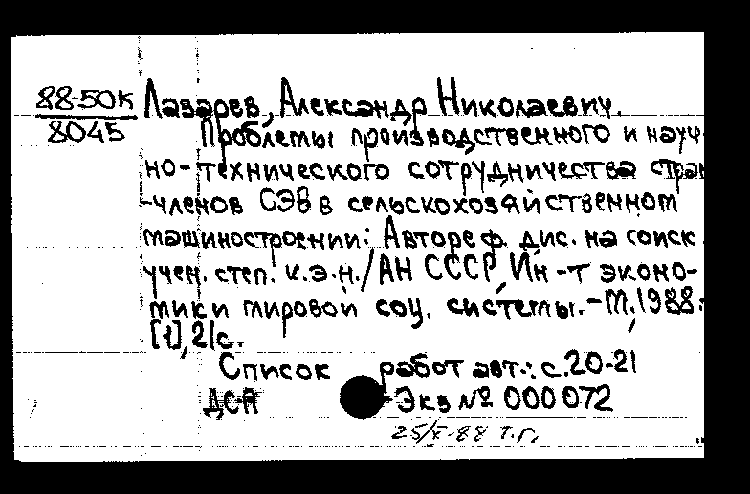 88-50к Лазарев, Александр Николаевич.
8045 Проблемы производственного и науч-
но-технического сотрудничества стран
-членов СЭВ в сельскохозяйственном
машиностроении: Автореф. дис. на соиск.
учен. степ. к.э.н./АН СССР, Ин-т эконо-
мики мировой соц. системы.-М., 1988.-
[1], 21с.
Список работ авт.: с.20-21
ДСП - Экз № 000072
25/X-88 т.г.